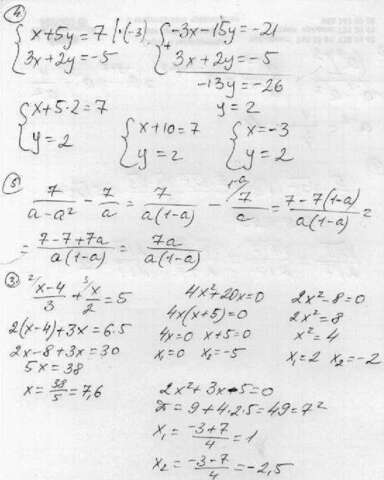 ④
{ x+5y=7 |·(-3)
3x+2y=-5
{ -3x-15y=-21
+ 3x+2y=-5
-13y=-26
y=2
{ x+5·2=7
y=2
{ x+10=7
y=2
{ x=-3
y=2
⑤
7/(a-a²) - 7/a = 7/(a(1-a)) - 7/a ^(1-a) = (7-7(1-a))/(a(1-a)) =
= (7-7+7a)/(a(1-a)) = 7a/(a(1-a))
③
²⁾(x-4)/3 + ³⁾x/2 = 5
2(x-4)+3x=6·5
2x-8+3x=30
5x=38
x=38/5=7,6
4x²+20x=0
4x(x+5)=0
4x=0 x+5=0
x₁=0 x₂=-5
2x²-8=0
2x²=8
x²=4
x₁=2 x₂=-2
2x²+3x-5=0
D=9+4·2·5=49=7²
x₁=(-3+7)/4=1
x₂=(-3-7)/4=-2,5